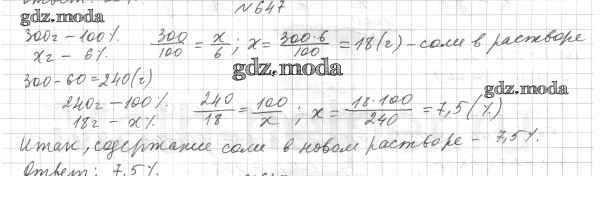 №647
gdz.moda
300г – 100%. 300/100 = x/6; x = 300·6/100 = 18(г) – соли в растворе
хг – 6%
gdz.moda
300-60=240(г)
gdz.moda
240г – 100%. 240/18 = 100/x; x = 18·100/240 = 7,5(%)
18г – х%
Итак, содержание соли в новом растворе – 7,5%.
Ответ: 7,5%